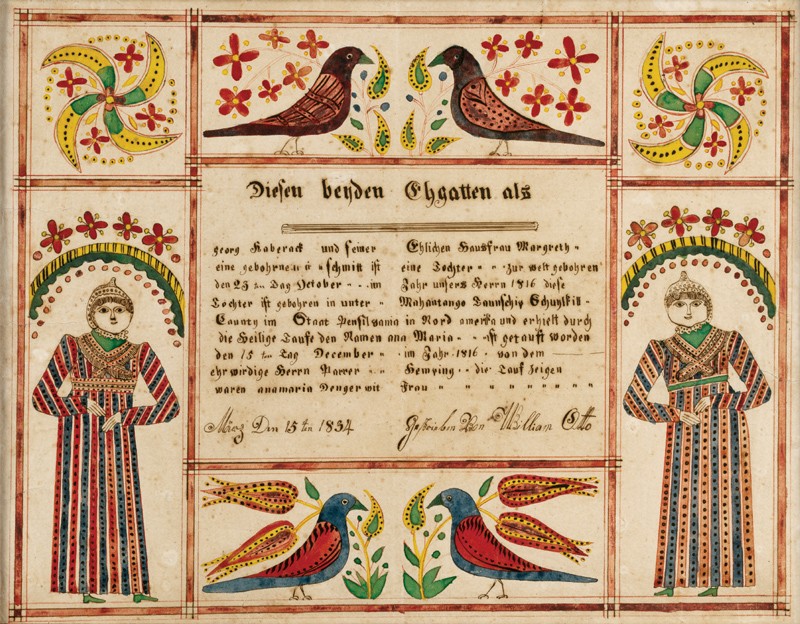 Diesen beyden Ehgatten als
georg Haberack und seiner Ehlichen Hausfrau Margreth
eine gebohrne schmitt ist eine Tochter zur welt gebohren
den 25 ten Tag October im Jahr unsers Herrn 1816 diese
Tochter ist gebohren in unter Mahantango Taunschip Schuylkil
Caunty im Staat Pensilvania in Nord amerika und erhielt durch
die Heilige Taufe den Namen ana Maria ist getauft worden
den 15 ten Tag December im Jahr 1816 von dem
ehrwirdige Herrn Parrer Hemping die Tauf Zeigen
waren anamaria Dengerwit Frau
Merz Den 15 ten 1834 Geschrieben Von William Otto